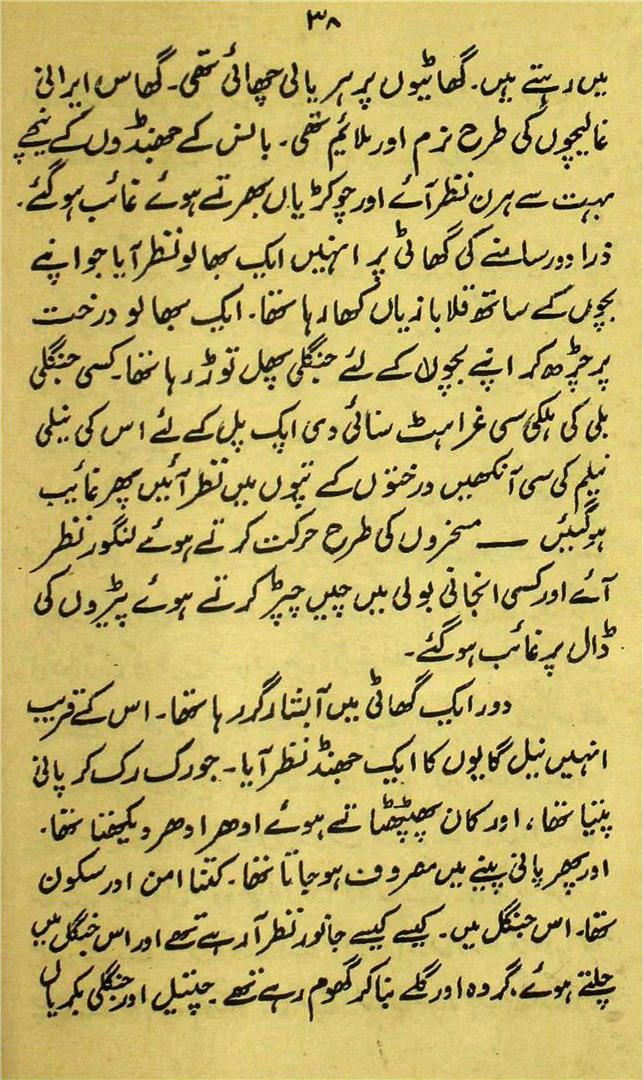 ۳۸
میں رہتے ہیں۔ گھاٹیوں پر ہریالی چھائی تھی۔ گھاس ایرانی
غالیچوں کی طرح نرم اور ملائیم تھی۔ بانس کے جھنڈوں کے نیچے
بہت سے ہرن نظر آئے اور چوکڑیاں بھرتے ہوئے غائب ہو گئے۔
ذرا دور سامنے کی گھاٹی پر انہیں ایک بھالو نظر آیا جو اپنے
بچوں کے ساتھ قلابازیاں کھا رہا تھا۔ ایک بھالو درخت
پر چڑھ کر اپنے بچوں کے لئے جنگلی پھل توڑ رہا تھا۔ کسی جنگلی
بلی کی ہلکی سی غراہٹ سنائی دی ایک پل کے لئے اس کی نیلی
نیلم کی سی آنکھیں درختوں کے تپوں میں نظر آئیں پھر غایب
ہو گئیں — مسخروں کی طرح حرکت کرتے ہوئے لنگور نظر
آئے اور کسی انجانی بولی میں چیں چپڑ کرتے ہوئے پیڑوں کی
ڈال پر غائب ہو گئے۔
دور ایک گھاٹی میں آبشار گر رہا تھا۔ اس کے قریب
انہیں نیل گایوں کا ایک جھنڈ نظر آیا۔ جو رک رک کر پانی
پیتا تھا، اور کان پھٹپھٹاتے ہوئے ادھر ادھر دیکھتا تھا۔
اور پھر پانی پینے میں مصروف ہو جاتا تھا۔ کتنا امن اور سکون
تھا۔ اس جنگل میں۔ کیسے کیسے جانور نظر آ رہے تھے اور اس جنگل میں
چلتے ہوئے، گروہ اور گلے بنا کر گھوم رہے تھے۔ چیتل اور جنگلی بکریاں